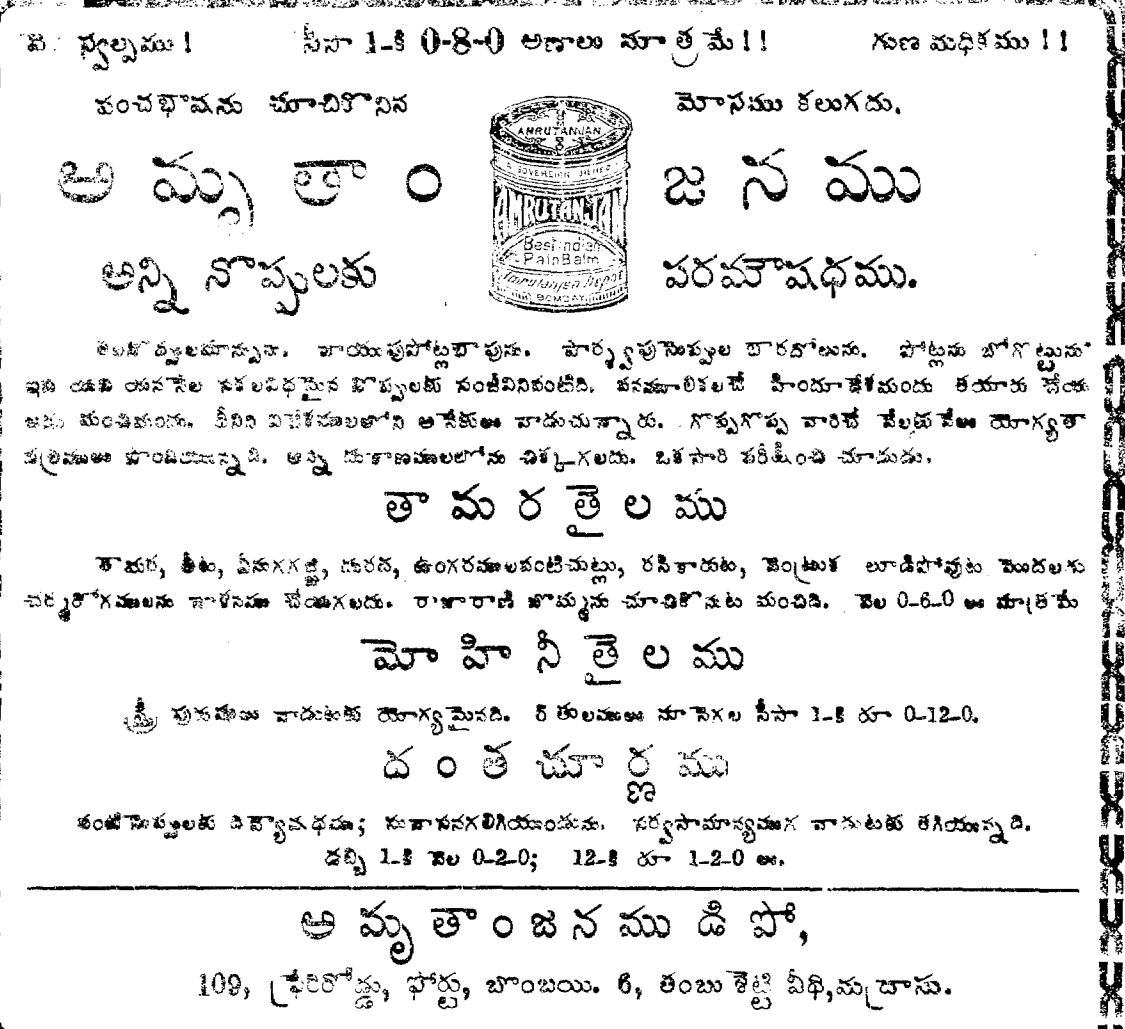 స్వల్పము! సీసా 1-కి 0-8-0 అణాలు మాత్రమే!! గుణ మధికము!!
పంచభాషను చూచికొనిన మోసము కలుగదు.
AMRUTANJAN
SOVEREIGN
AMRUTANJAN
Best Indian
Pain Balm
Amrutanjan Depot
BOMBAY
అమృతాంజనము
అన్ని నొప్పులకు పరమౌషధము.
వాయుపుపోట్లబాపును. పార్శ్వపునొప్పుల బారదోలును. పోట్లను బోగొట్టును
ఇది యది యననేల సకలవిధమైన నొప్పులకు సంజీవినివంటిది. వనమూలికలచే హిందూదేశమందు తయారు చేయ
బడు మంచిమందు. దీనిని విదేశములలోని అనేకులు వాడుచున్నారు. గొప్పగొప్ప వారిచే వేలకువేలు యోగ్యతా
పత్రికలు పొందియున్నది. అన్ని దుకాణములలోను చిక్కగలదు. ఒకసారి పరీక్షించి చూడుడు.
తామరతైలము
తామర, తీట, ఏనుగగజ్జి, దురద, ఉంగరములవంటిచుట్లు, రసికారుట, వెంట్రుక లూడిపోవుట మొదలగు
చర్మరోగములను నాశనము చేయగలదు. రాజారాణి బొమ్మను చూచికొనుట మంచిది. వెల 0-6-0 అ మాత్రమే
మోహినీతైలము
స్త్రీ పురుషులు వాడుటకు యోగ్యమైనది. ౯ తులములు నూనెగల సీసా 1-కి రూ 0-12-0.
దంతచూర్ణము
పంటినొప్పులకు దివ్యౌషధము; సువాసనగలిగియుండును. సర్వసామాన్యముగ వాడుటకు తగియున్నది.
డబ్బి 1-కి వెల 0-2-0; 12-కి రూ 1-2-0 అ.
అమృతాంజనము డిపో,
109, ఫ్రేరిరోడ్డు, ఫోర్టు, బొంబయి. 6, తంబుశెట్టి వీథి, మద్రాసు.